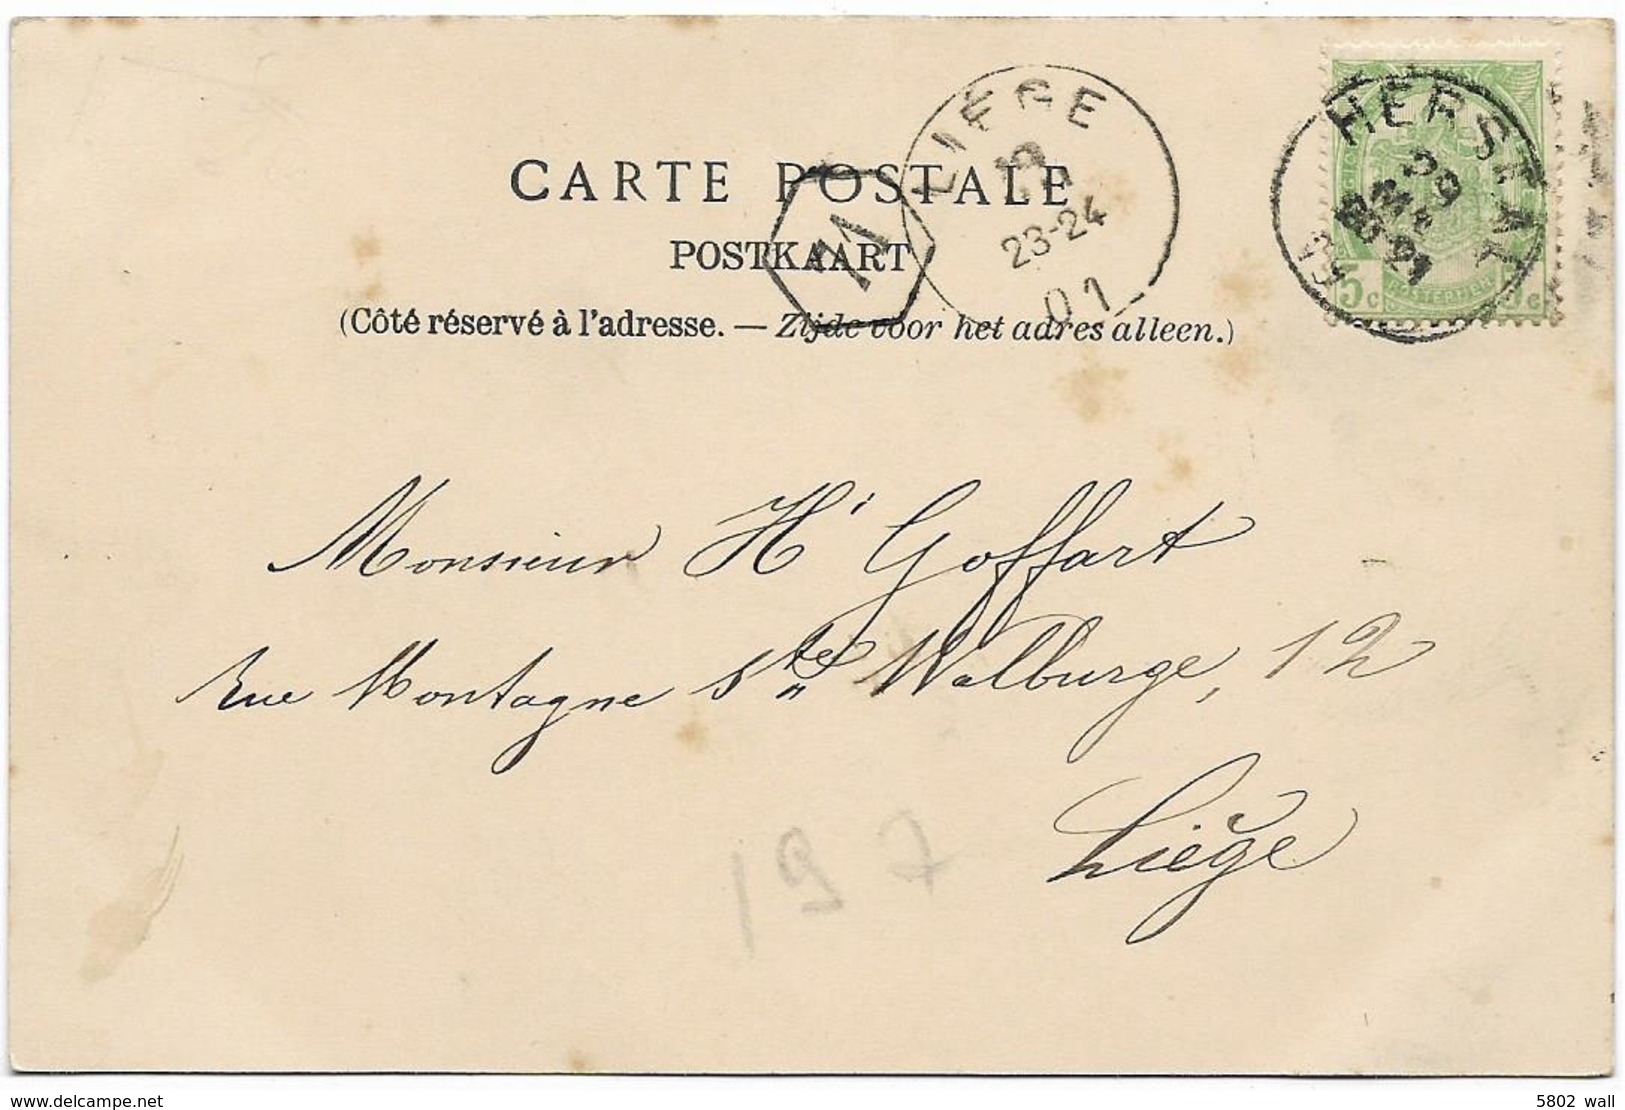 CARTE POSTALE
POSTKAART
(Côté réservé à l'adresse. — Zijde voor het adres alleen.)
LIEGE
23-24
01
HERSTAL
5c 5c
Monsieur H Goffart
Rue Montagne Ste Walburge, 12
Liège
5802 wall
www.delcampe.net